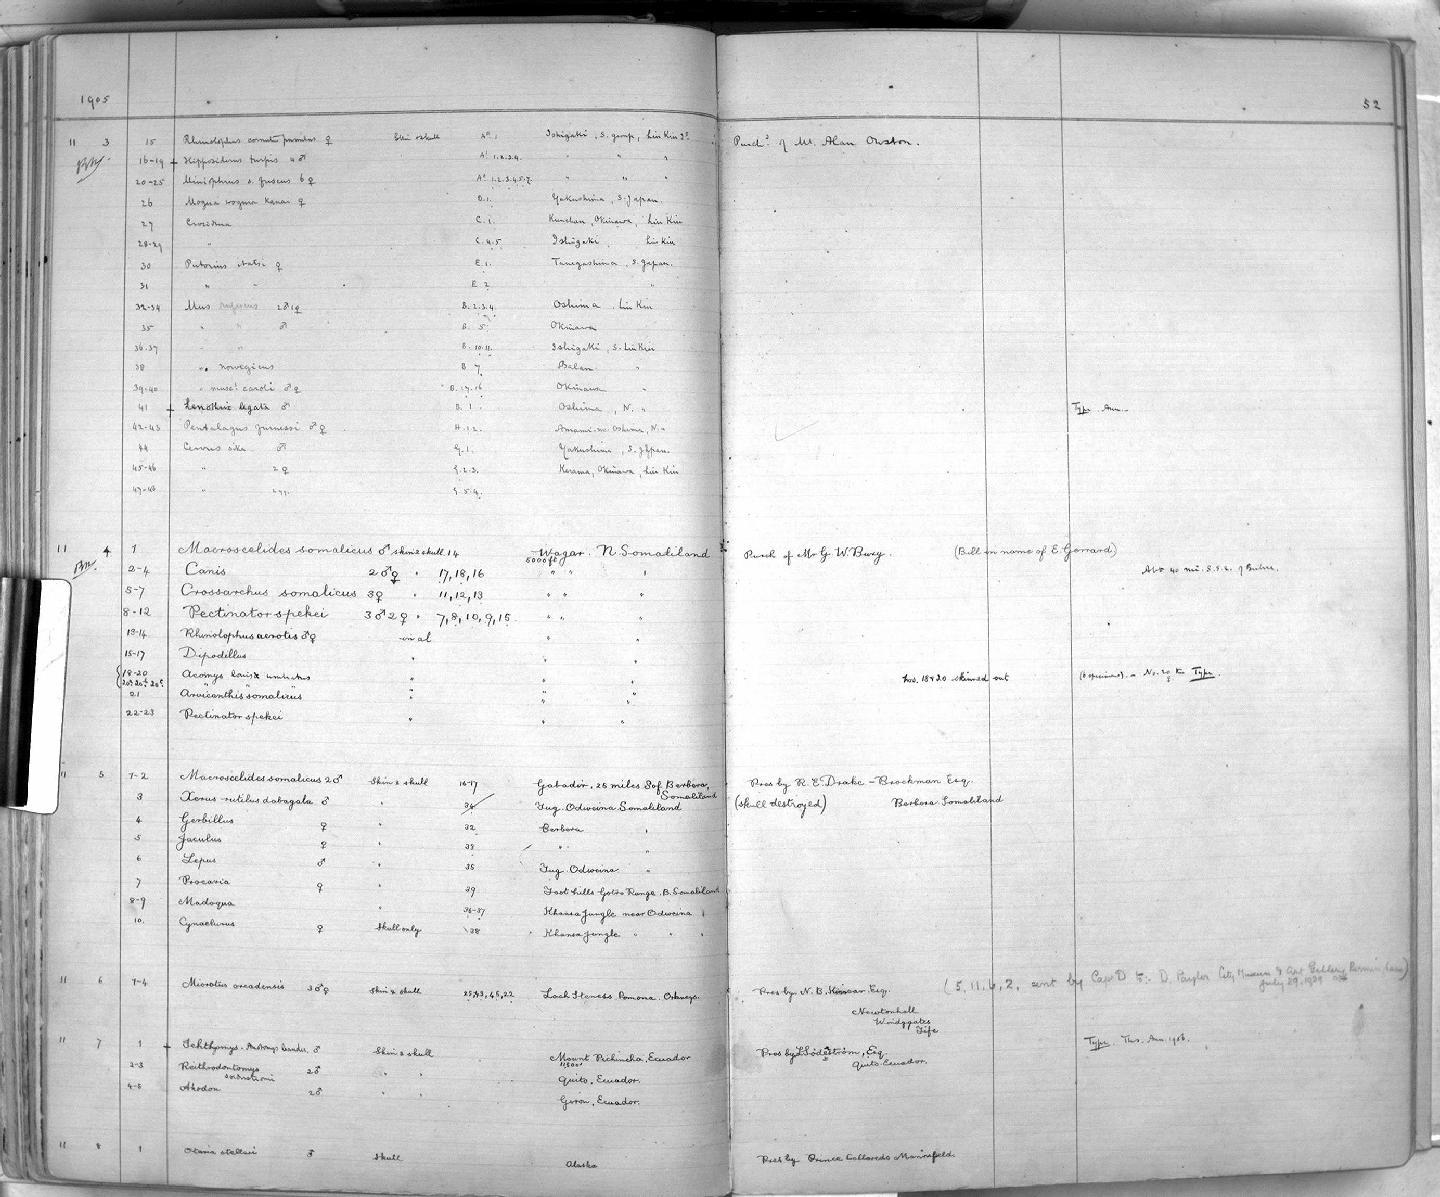 1905 52
11 3 15 Rhinolophus cornutus pumilus ♀ Skin & skull A. 1 Ishigaki, S. group, Liu Kiu Is. Purchd. of Mr. Alan Owston.
16-19 + Hipposiderus turpis 4♂ A. 1.2.3.4. " " "
20-25 Miniopterus s. fuscus 6♀ " " "
26 Mogera wogura kanai ♀ D.1. Yakushima, S. Japan.
27 Crocidura C.1. Okinawa, Liu Kiu
28-29 " C.4.5. Ishigaki, Liu Kiu
30 Putorius itatsi ♀ E.1. Tanegashima, S. Japan.
31 " " E.2 "
32-34 Mus 2♂1♀ B.2.3.4. Oshima, Liu Kiu
35 " " ♂ B. 5. Okinawa
36.37 " " B. 10.11. Ishigaki, S. Liu Kiu
38 " norvegicus B 7. "
39-40 " caroli ♂♀ B. Okinawa "
41 + Lenothrix legata ♂ B. 1. Oshima, N. " Type Ann.
42-43 Pentalagus furnessi ♂♀ H.1.2. Amami-no Oshima, N. "
44 Cervus sika ♂ G.1. Yakushima, S. Japan.
45-46 " 2♀ G.2.3. Kerama, Okinawa, Liu Kiu
47-48 " G.5.4.
11 4 1 Macroscelides somalicus ♂ skin & skull 14 Wagar. N. Somaliland Purch of Mr G. W. Bury. (Bill in name of E. Gerrard)
5000 ft
2-4 Canis 2♂♀ " 17, 18, 16 " " " Abt 40 mi. S.S.E. of Bulhar.
5-7 Crossarchus somalicus 3♀ " 11, 12, 13 " " "
8-12 Pectinator spekei 3♂2♀ " 7, 8, 10, 9, 15. " " "
13-14 Rhinolophus acrotis ♂♀ in al " "
15-17 Dipodillus " " "
18-20 Acomys louisæ umbratus " " " Nos. 18 & 20 skinned out (6 specimens). No. 20 the Type.
20a 20b 20c " " "
21 Arvicanthis somalicus " " "
22-23 Pectinator spekei " " "
11 5 1-2 Macroscelides somalicus 2♂ Skin & skull 16-17 Gabadir, 25 miles S of Berbera, Pres by R. E. Drake-Brockman Esq.
Somaliland
3 Xerus rutilus dabagala ♂ " 34 Tug Odweina Somaliland (skull destroyed) Berbera Somaliland
4 Gerbillus ♀ " 32 Berbera "
5 Jaculus ♀ " 33 " "
6 Lepus ♂ " 35 Tug Odweina "
7 Procavia ♀ 29 Foothills Golis Range. B. Somaliland
8-9 Madoqua " 36-37 Khansa Jungle near Odweina "
10. Cynaelurus ♀ Skull only 38 Khansa Jungle " " "
11 6 1-4 Microtus orcadensis 3♂♀ Skin & skull 25, 43, 45, 22 Loch Steness Pomona. Orkneys. Pres by N. B. Kinnear Esq. (5, 11, 6, 2, sent by Capt D to D. Paylor City Museum & Art Gallery
July 29, 1929
Newtonhall
Windygates
Fife
11 7 1 + Ichthyomys ♂ Skin & skull Mount Pichincha, Ecuador Pres by L Söderström, Esq. Type. Thos. Ann. 1906.
11500'
Quito Ecuador.
2-3 Reithrodontomys 2♂ " " Quito, Ecuador.
söderstromi
4-5 Akodon 2♂ " " Giron, Ecuador.
11 8 1 Otaria stelleri ♂ Skull Alaska Pres by Prince Colloredo Mannsfeld.